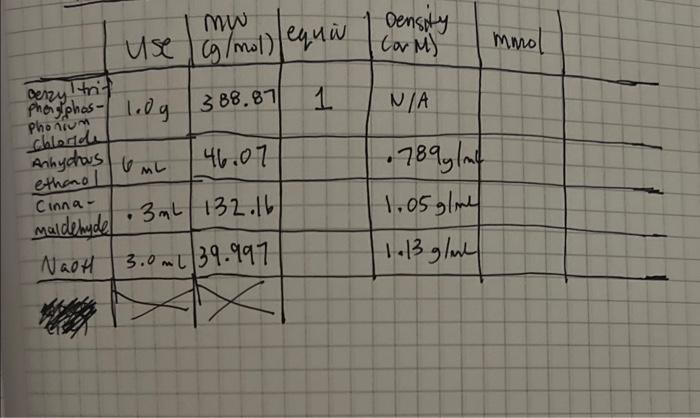 Use
MW
(g/mol)
equiv
Density
(or M)
mmol
Benzyltri-
phenylphos-
phonium
chloride
1.0g
388.87
1
N/A
Anhydrous
ethanol
6 mL
46.07
.789g/mL
Cinna-
maldehyde
.3mL
132.16
1.05 g/mL
NaOH
3.0 mL
39.997
1.13 g/mL